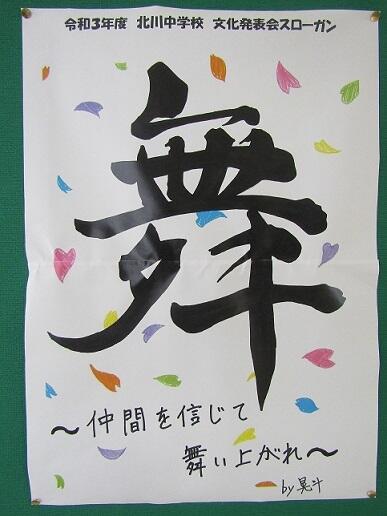 令和3年度 北川中学校 文化発表会スローガン
舞
～仲間を信じて
舞い上がれ～
by晃斗